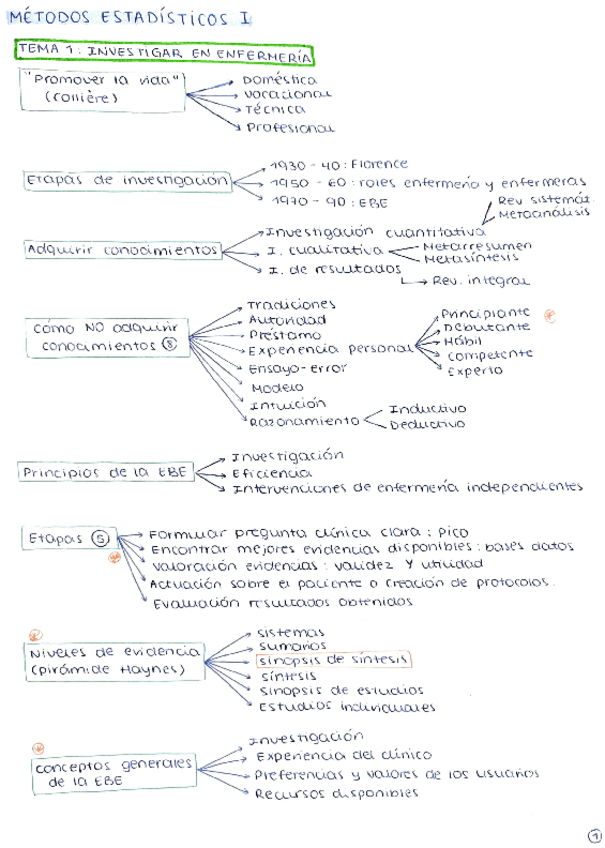 MÉTODOS ESTADÍSTICOS I
TEMA 1: INVESTIGAR EN ENFERMERÍA
"Promover la vida"
(Collière)
Doméstica
Vocacional
Técnica
Profesional
Etapas de investigación
1930 - 40: Florence
1950 - 60: roles enfermería y enfermeras
1970 - 90: EBE
Adquirir conocimientos
Investigación cuantitativa
Rev sistemát.
Metaanálisis
I. cualitativa
Metarresumen
Metasíntesis
I. de resultados
Rev. integral
Cómo NO adquirir
conocimientos 8
Tradiciones
Autoridad
Préstamo
Experiencia personal
Principiante
Debutante
Hábil
Competente
Experto
Ensayo-error
Modelo
Intuición
Razonamiento
Inductivo
Deductivo
Principios de la EBE
Investigación
Eficiencia
Intervenciones de enfermería independientes
Etapas 5
Formular pregunta clínica clara: pico
Encontrar mejores evidencias disponibles: bases datos
Valoración evidencias: validez y utilidad
Actuación sobre el paciente o creación de protocolos.
Evaluación resultados obtenidos
Niveles de evidencia
(pirámide Haynes)
Sistemas
Sumarios
Sinopsis de síntesis
Síntesis
Sinopsis de estudios
Estudios individuales
Conceptos generales
de la EBE
Investigación
Experiencia del clínico
Preferencias y valores de los usuarios
Recursos disponibles
1